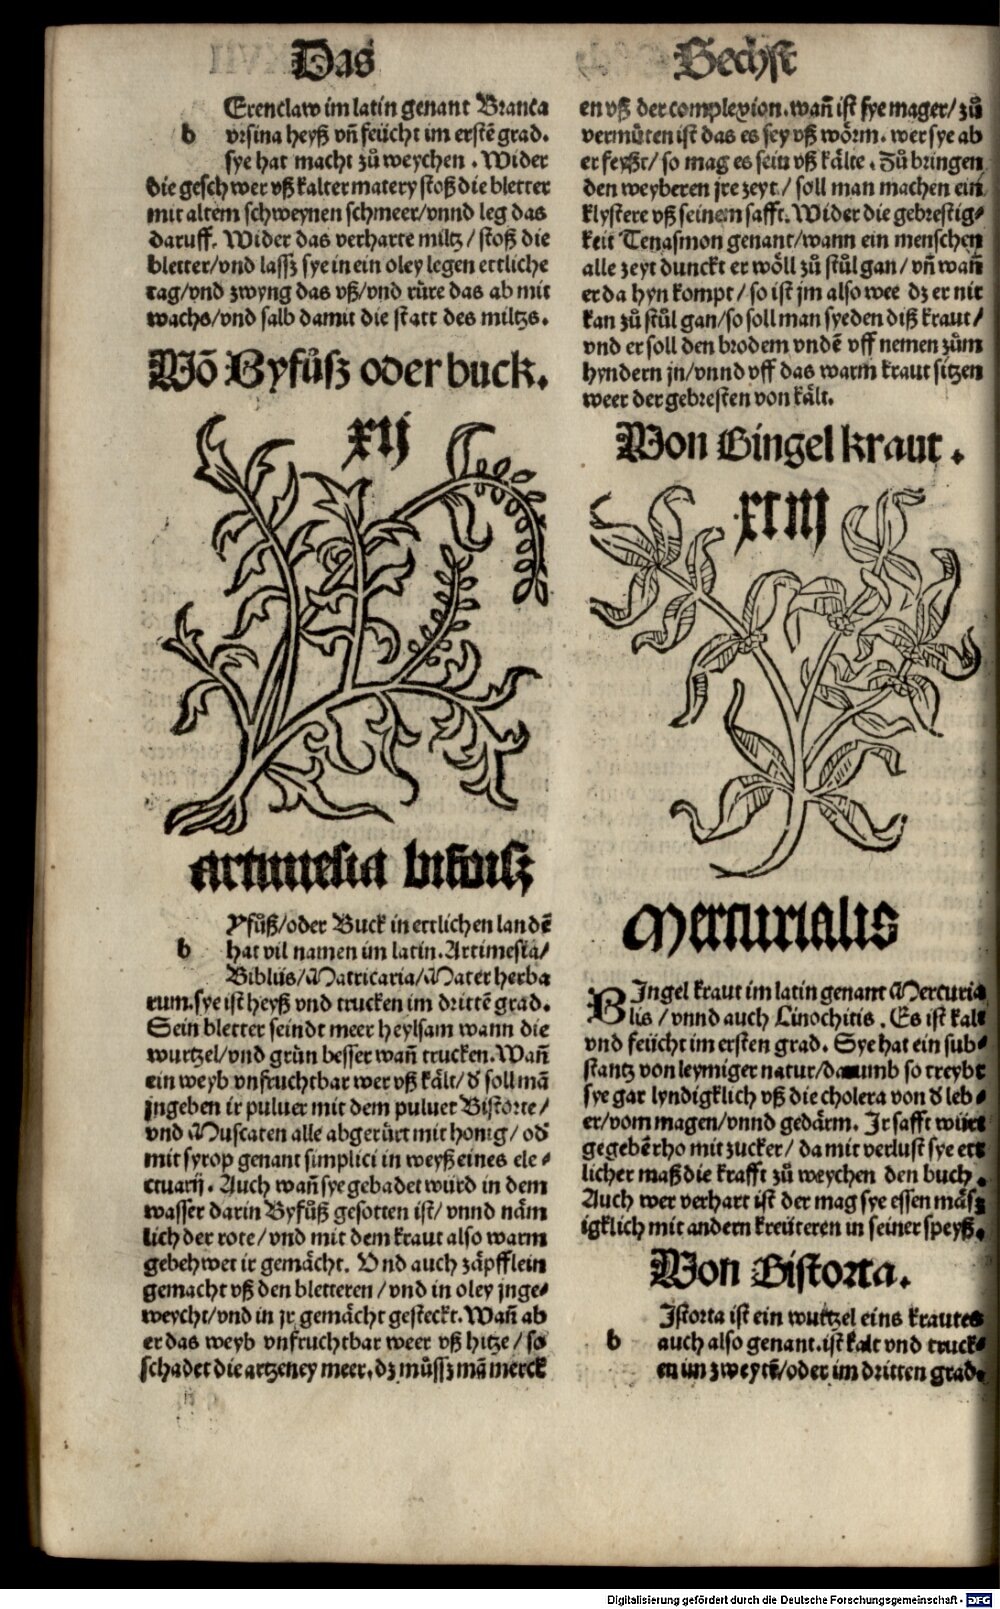 Das
Sechst
Erenclaw im latin genant Branca
b vrsina heyß vñ feücht im erstē grad.
sye hat macht zů weychen. Wider
die geschwer vß kalter matery stoß die bletter
mit altem schweynen schmeer/vnnd leg das
daruff. Wider das verharte miltz/stoß die
bletter/vnd lassz sye in ein oley legen ettliche
tag/vnd zwyng das vß/vnd rüre das ab mit
wachs/vnd salb damit die statt des miltzs.
Vvō Byfůsz oder buck.
xij
artimesia bifusz
Yfůß/oder Buck in ettlichen landē
b hat vil namen im latin. Artimesia/
Biblüs/Matricaria/Mater herba
rum. sye ist heyß vnd trucken im drittē grad.
Sein bletter seindt meer heylsam wann die
wurtzel/vnd grün besser wañ trucken. Wañ
ein weyb vnfruchtbar wer vß kält/ď soll mā
jngeben ir puluer mit dem puluer Bistorte/
vnd Muscaten alle abgerürt mit honig/oď
mit syrop genant simplici in weyß eines ele⸗
ctuarij. Auch wañ sye gebadet würd in dem
wasser darin Byfůß gesotten ist/vnnd näm
lich der rote/vnd mit dem kraut also warm
gebehwet ir gemächt. Vnd auch zäpfflein
gemacht vß den bletteren/vnd in oley jnge⸗
weycht/vnd in jr gemächt gesteckt. Wañ ab
er das weyb vnfruchtbar weer vß hitze/so
schadet die artzeney meer. dz můssz mā merck
en vß der complexion. wañ ist sye mager/zů
vermůten ist das es sey vß wörm. wer sye ab
er feyßt/so mag es sein vß kälte. Zů bringen
den weyberen jre zeyt/soll man machen ein
klystere vß seinem safft. Wider die gebrestig⸗
keit Tenasmon genant/wann ein menschen
alle zeyt dunckt er wöll zů stůl gan/vñ wañ
er da hyn kompt/so ist jm also wee dz er nit
kan zů stůl gan/so soll man syeden diß kraut/
vnd er soll den brodem vndē vff nemen zům
hyndern jn/vnnd vff das warm kraut sitzen
weer der gebresten von kält.
Von Bingelkraut.
xiiij
Mercurialis
BIngel kraut im latin genant Mercuria
lis/vnnd auch Linochitis. Es ist kalt
vnd feücht im ersten grad. Sye hat ein sub⸗
stantz von leymiger natur/darumb so treybt
sye gar lyndigklich vß die cholera von ď leb⸗
er/vom magen/vnnd gedärm. Ir safft würt
gegebē rho mit zucker/da mit verlust sye ett
licher maß die krafft zů weychen den buch.
Auch wer verhart ist der mag sye essen mäsz
igklich mit andern kreüteren in seiner speyß.
Von Bistorta.
Istorta ist ein wurtzel eins krautes
b auch also genant. ist kalt vnd truck⸗
en im zweytē/oder im dritten grad.
Digitalisierung gefördert durch die Deutsche Forschungsgemeinschaft - DFG